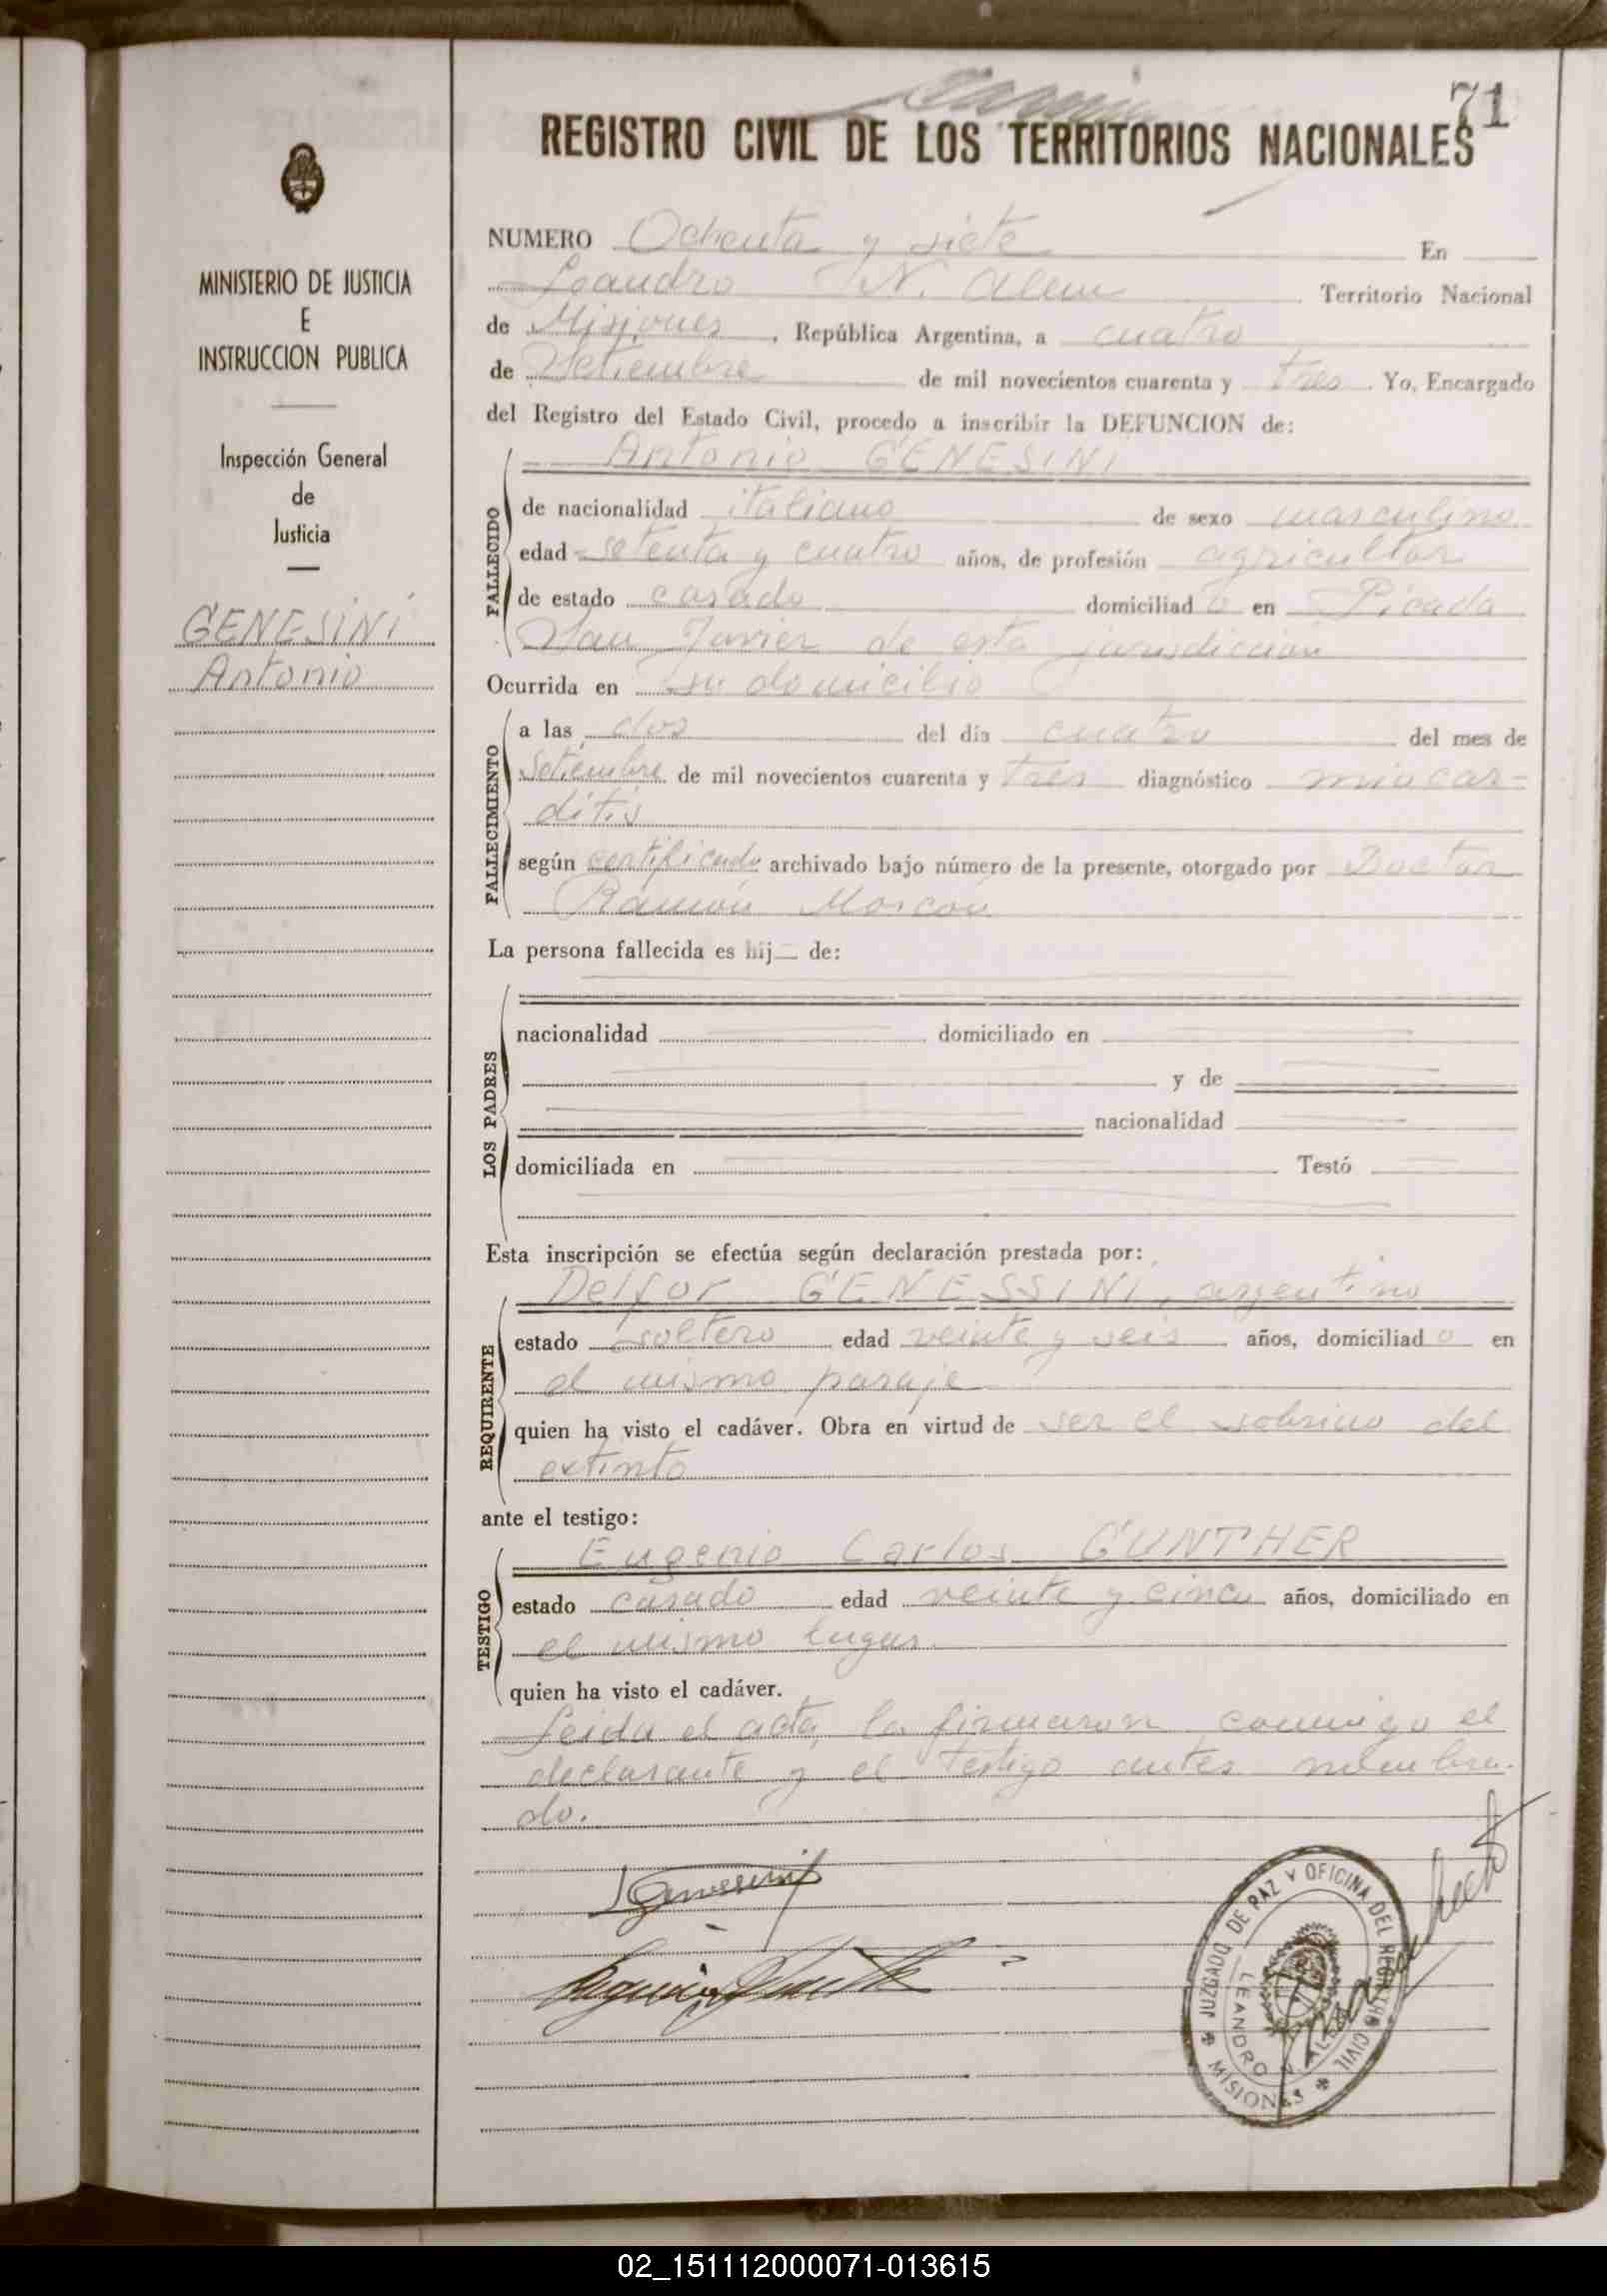 71
REGISTRO CIVIL DE LOS TERRITORIOS NACIONALES
MINISTERIO DE JUSTICIA
E
INSTRUCCION PUBLICA
Inspección General
de
Justicia
GENESINI
Antonio
NUMERO Ochenta y siete En
Leandro N. Alem Territorio Nacional
de Misiones, República Argentina, a cuatro
de Setiembre de mil novecientos cuarenta y tres. Yo, Encargado
del Registro del Estado Civil, procedo a inscribir la DEFUNCION de:
Antonio GENESINI
FALLECIDO
de nacionalidad italiano de sexo masculino
edad setenta y cuatro años, de profesión agricultor
de estado casado domiciliado en Picada
San Javier de esta jurisdicción
Ocurrida en su domicilio
FALLECIMIENTO
a las dos del día cuatro del mes de
Setiembre de mil novecientos cuarenta y tres diagnóstico miocar-
ditis
según certificado archivado bajo número de la presente, otorgado por Doctor
Ramón
La persona fallecida es hij de:
LOS PADRES
nacionalidad domiciliado en
y de
nacionalidad
domiciliada en Testó
Esta inscripción se efectúa según declaración prestada por:
Delfor GENESSINI, argentino
REQUIRENTE
estado soltero edad veinte y seis años, domiciliado en
el mismo paraje
quien ha visto el cadáver. Obra en virtud de ser el sobrino del
extinto
ante el testigo:
Eugenio Carlos GUNTHER
TESTIGO
estado casado edad veinte y cinco años, domiciliado en
el mismo lugar.
quien ha visto el cadáver.
Leida el acta, la firmaron conmigo el
declarante y el testigo antes nombra-
do.
JUZGADO DE PAZ Y OFICINA DEL REGISTRO CIVIL
LEANDRO N. ALEM
MISIONES
02_151112000071-013615